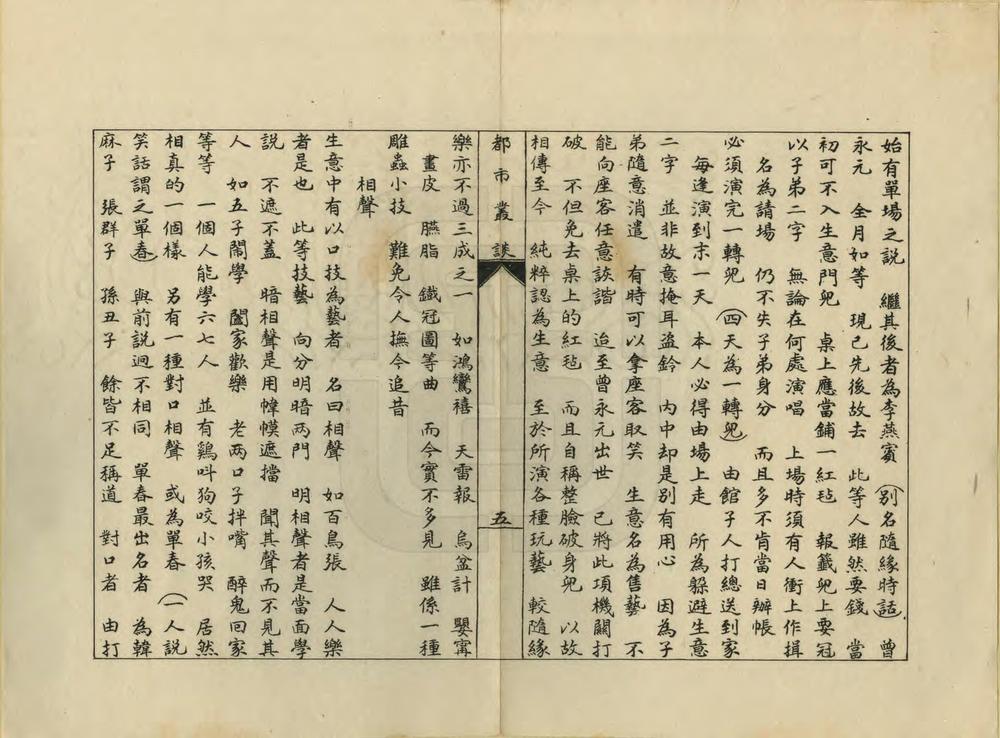 始有單場之說　繼其後者為李燕賓（別名隨緣時話）曾
永元　全月如等　現已先後故去　此等人雖然要錢　當
初可不入生意門兒　桌上應當鋪一紅毡　報籤兒上要冠
以子弟二字　無論在何處演唱　上場時須有人衝上作揖
名為請場　仍不失子弟身分　而且多不肯當日辦帳
必須演完一轉兒（四天為一轉兒）由館子人打總送到家
每逢演到末一天　本人必得由場上走　所為躲避生意
二字　並非故意掩耳盜鈴　內中却是別有用心　因為子
弟隨意消遣　有時可以拿座客取笑　生意名為售藝　不
能向座客任意詼諧　迨至曾永元出世　已將此項機關打
破　不但免去桌上的紅毡　而且自稱整臉破身兒　以故
相傳至今　純粹認為生意　至於所演各種玩藝　較隨緣
都市叢談　五
樂亦不過三成之一　如鴻鸞禧　天雷報　烏盆計　嬰寗
畫皮　臙脂　鐵冠圖等曲　而今實不多見　雖係一種
雕蟲小技　難免令人撫今追昔
相聲
生意中有以口技為藝者　名曰相聲　如百鳥張　人人樂
者是也　此等技藝　向分明暗两門　明相聲者是當面學
說　不遮不蓋　暗相聲是用幃幙遮擋　聞其聲而不見其
人　如五子鬧學　闔家歡樂　老两口子拌嘴　醉鬼回家
等等　一個人能學六七人　並有鷄叫狗咬小孩哭　居然
相真的一個樣　另有一種對口相聲　或為單春（一人說
笑話謂之單春　與前說迥不相同　單春最出名者　為韓
麻子　張群子　孫丑子　餘皆不足稱道　對口者　由打